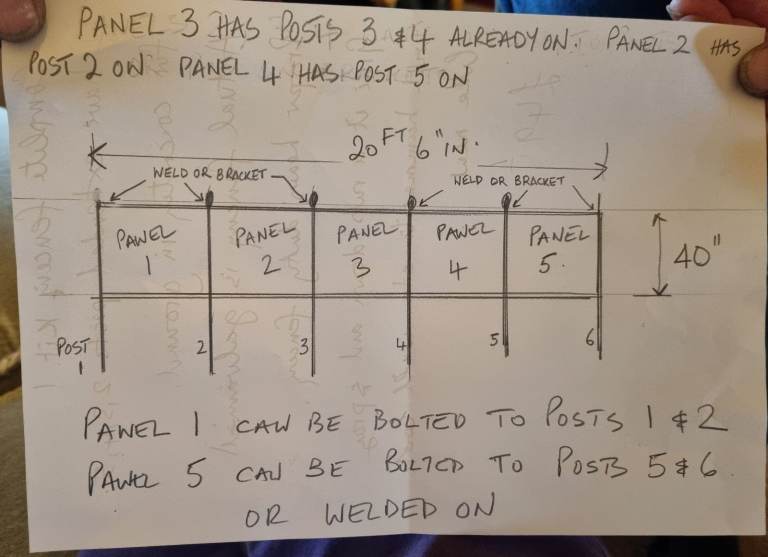 PANEL 3 HAS POSTS 3 & 4 ALREADY ON. PANEL 2 HAS
POST 2 ON PANEL 4 HAS POST 5 ON
20 FT 6" IN.
WELD OR BRACKET
WELD OR BRACKET
PANEL 1
PANEL 2
PANEL 3
PANEL 4
PANEL 5.
40"
POST 1
2
3
4
5
6
PANEL 1 CAN BE BOLTED TO POSTS 1 & 2
PANEL 5 CAN BE BOLTED TO POSTS 5 & 6.
OR WELDED ON